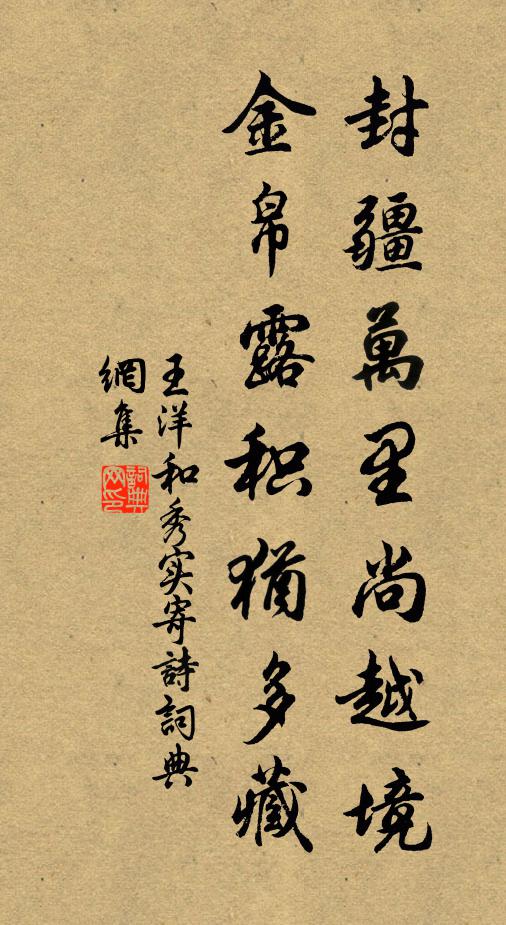 封疆萬里尚越境
金帛露积猶多藏
王洋和秀实寄詩詞典
網集
詞典
网印